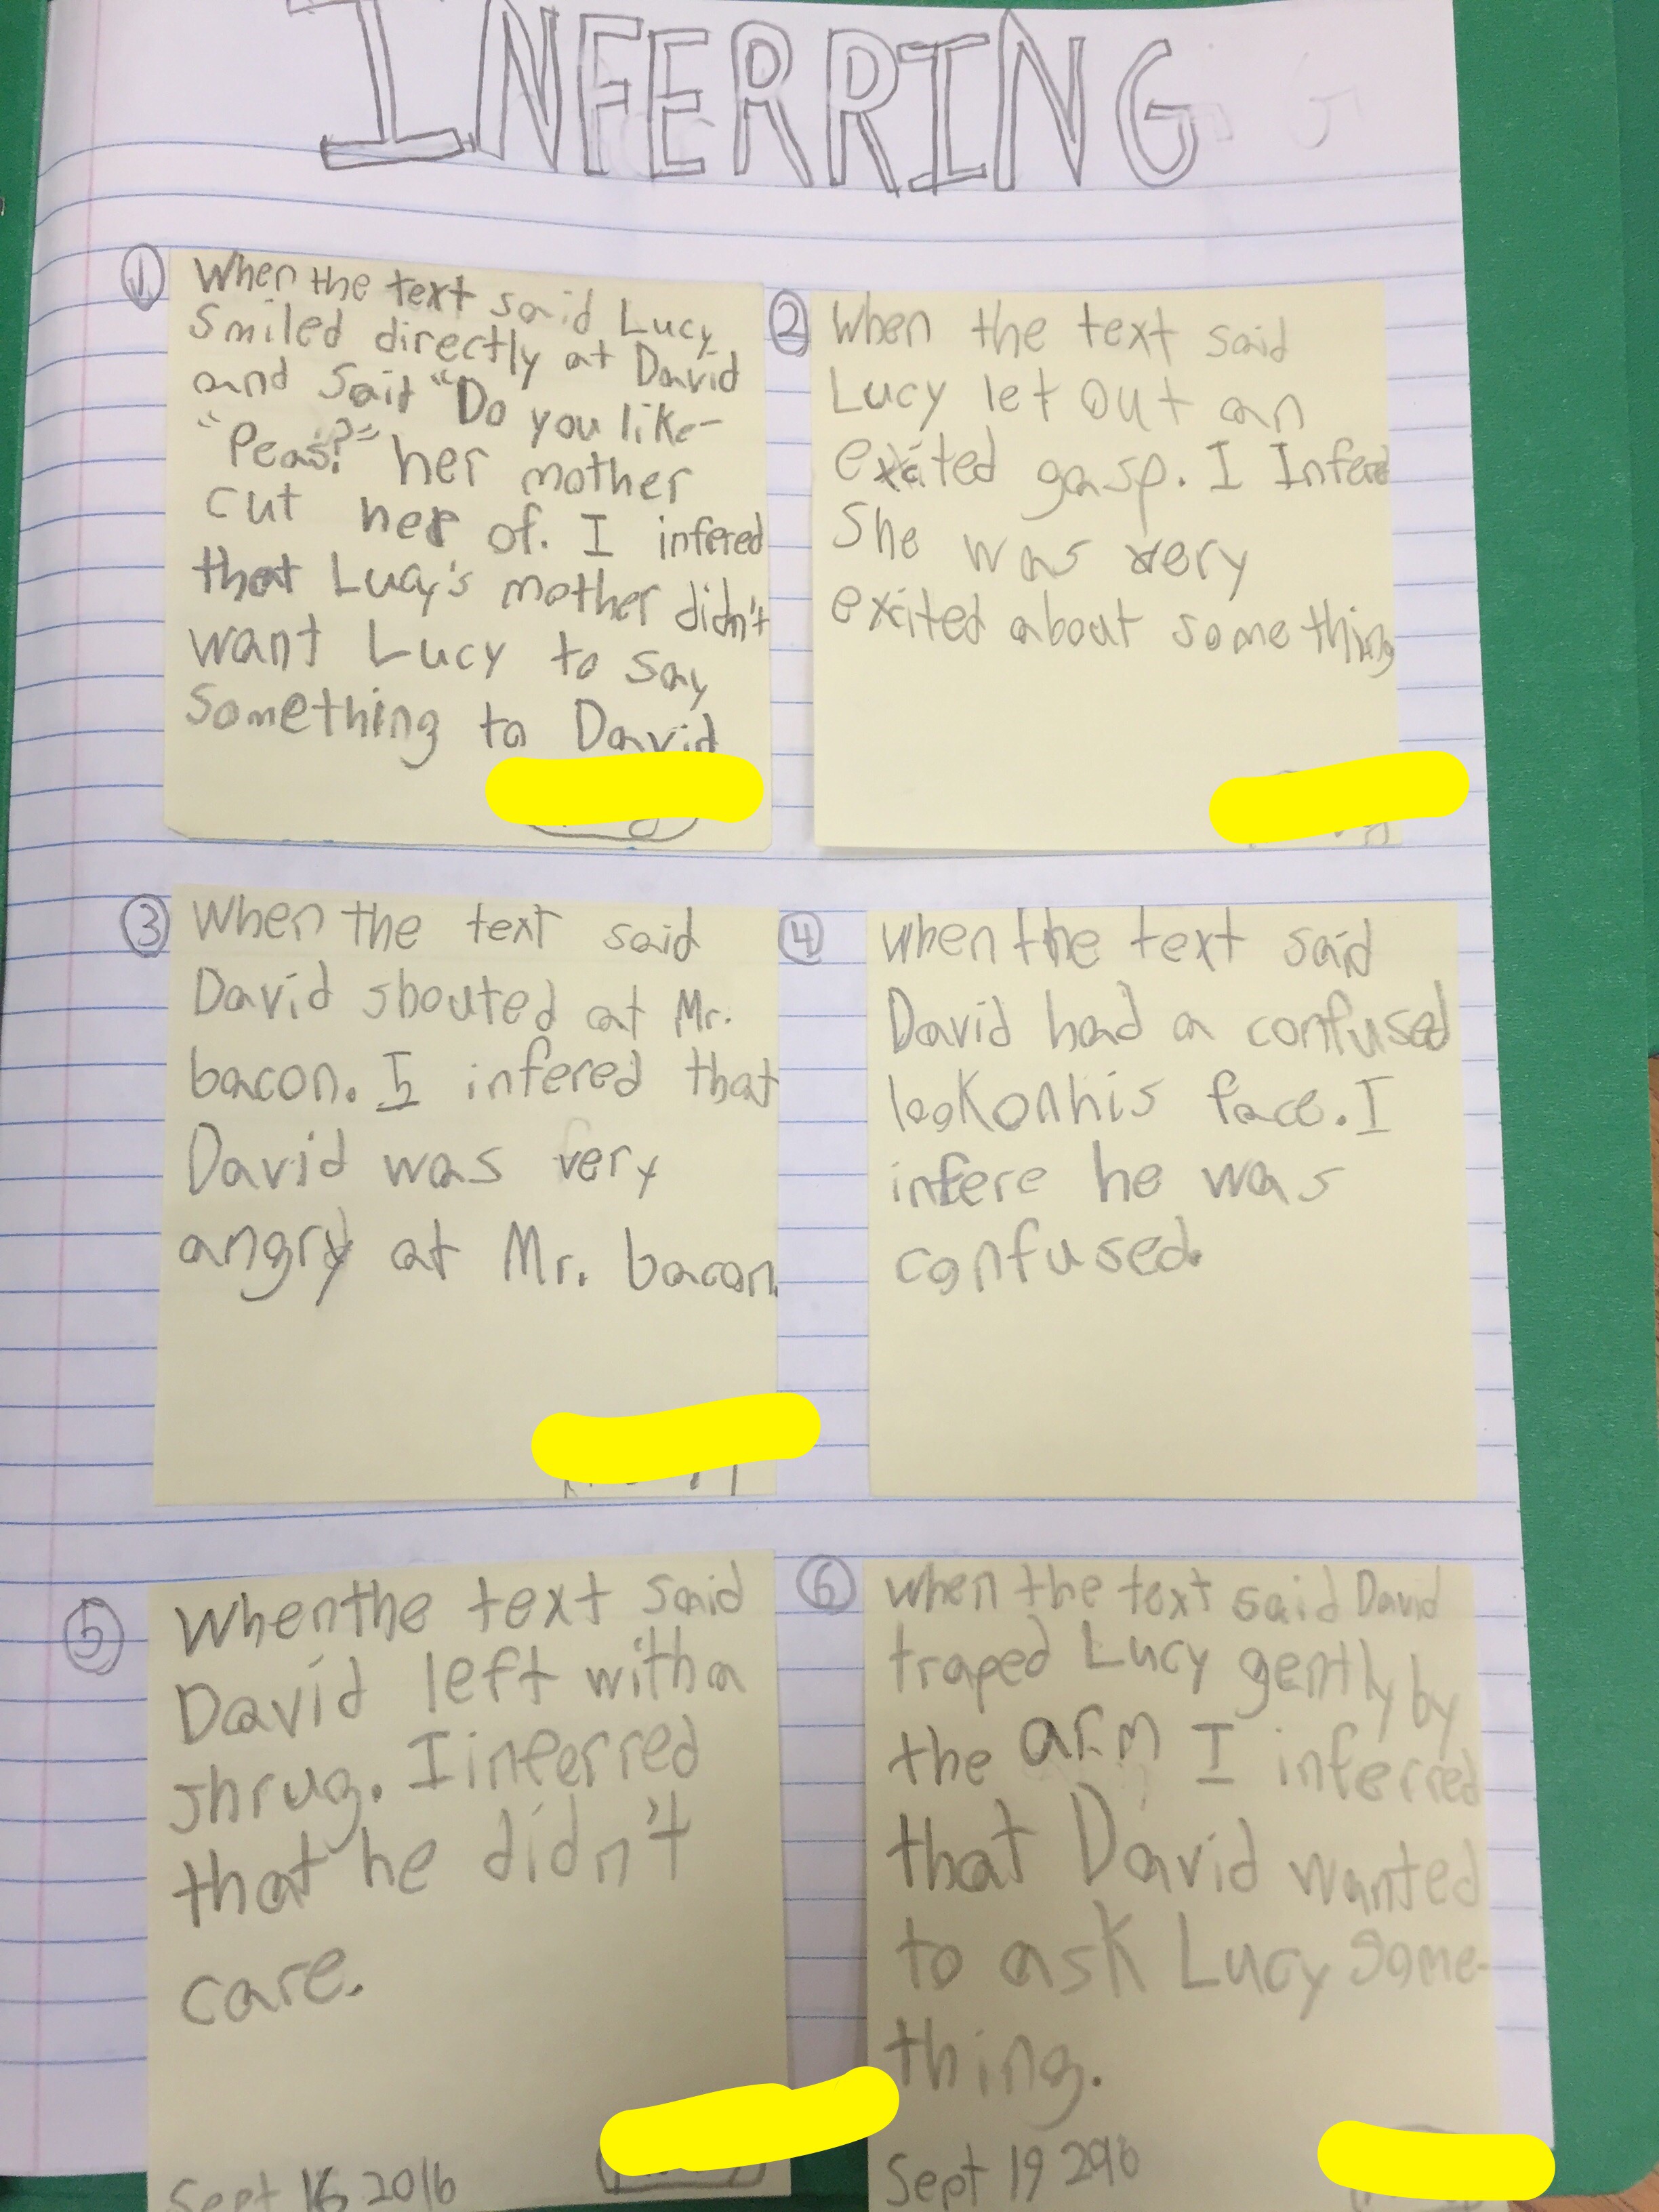 INFERRING
①
When the text said Lucy
smiled directly at David
and said "Do you like-
"Peas?" her mother
cut her of. I infered
that Lucy's mother didn't
want Lucy to say
something to David
②
When the text said
Lucy let out an
exited gasp. I Infered
She was very
exited about something
③
When the text said
David shouted at Mr.
bacon. I infered that
David was very
angry at Mr. bacon.
④
when the text said
David had a confused
look on his face. I
infere he was
confused.
⑤
When the text said
David left with a
shrug. I inferred
that he didn't
care.
Sept 16 2016
⑥
when the text said David
traped Lucy gently by
the arm I inferred
that David wanted
to ask Lucy some-
thing.
Sept 19 2016